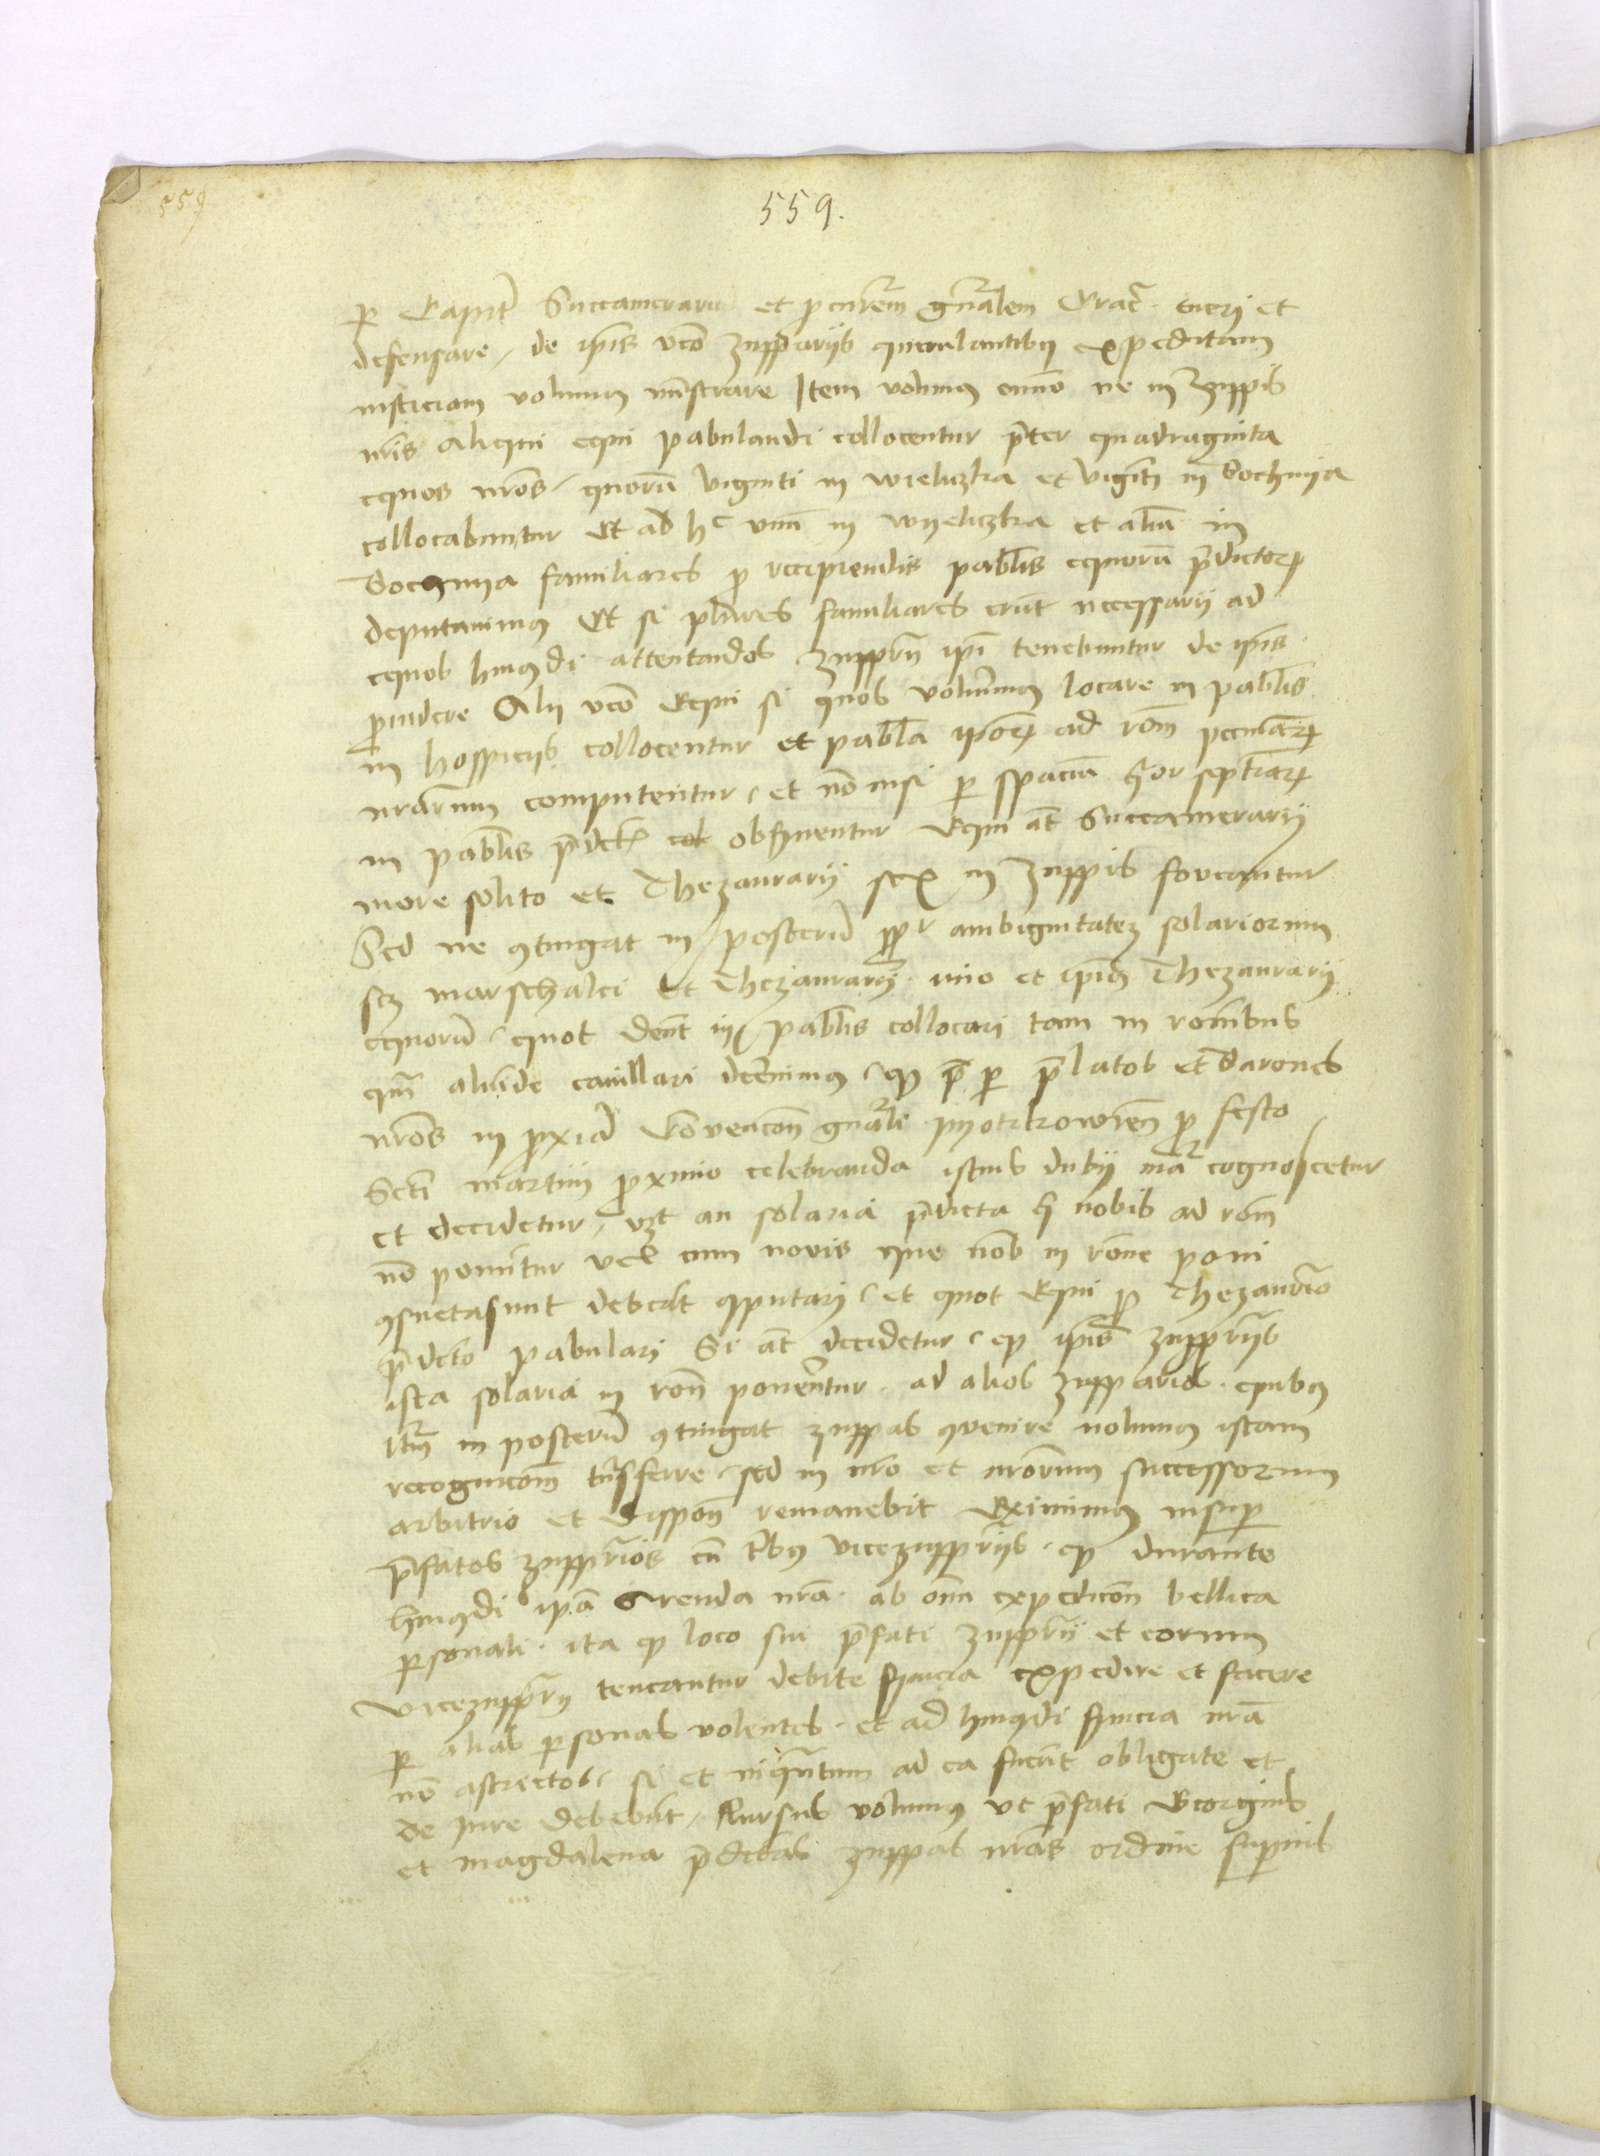 559
559.
p Capit Succamerariu et pcurem gnalem Crac. tueri et
defensare, de ipis vo zuppariis querulantibus expeditam
iusticiam volumus mistrare Item volumus omino ne in zuppis
nris aliqui equi pabulandi collocentur preter quadraginta
equos nros, quoru viginti in wieliczka et viginti in Bochnija
collocabuntur Et ad hc vnu in wyeliczka et aliu in
Bochnija familiares p recipiendis pablis equoru pdictor
deputauimus Et si plures familiares erut necessarij ad
equos hmodi attentandos zupprij ipi tenebuntur de ipis
puidere Alij vo Equi si quos voluerimus locare in pablis
in hospiciis collocentur et pabla ipor ad rom pecuniar
nrarum computentur, et no nisi p spaciu quor septiar
in pablis pdct obseruentur Equi at Succamerarij
more solito et Thezaurarij sex in zuppis foueantur
Sed ne contingat in posteru ppr ambiguitatez solariorum
sez marschalci et Thezaurarij imo et ipius Thezaurarij
equoru, quot debent in pablis collocari tam in rombus
qm aliunde cauillari decreuimus, q p platos et Barones
nros in pxia Conuencon gnali pyotrkowien p festo
Scti martini pximo celebranda istius dubij mar cognoscetur
et decidetur, vzt an solaria pdicta nobis ad rom
no ponuntur vel cum nouis que nob in rone poni
consueta sunt debeat computari, et quot Equi p Thezaurario
pdcto pabulari Si at decidetur, q ipis zuppriis
ista solaria in ron ponerentur, ad alios zupparios, quibus
itm in posteru contingat zuppas conuenire nolumus istam
recognicom tnsferre, sed in nro et nrorum successorum
arbitrio et dispon remanebit Eximimus insup
pfatos zupprios cu tribus vicezuppriis, q durante
hmodi ipa arenda nra ab omi expedicon bellica
psonali, ita q loco sui pfati zupprij et eorum
vicezupprij teneantur debite seruicia expedire et facere
p alias psonas volentes, et ad hmodi seruicia nra
no astrictos, si et inquantum ad ea fuerint obligate et
de jure debebunt, Rursus volumus vt pfati Georgius
et magdalena pdictas zuppas nras ordine supius